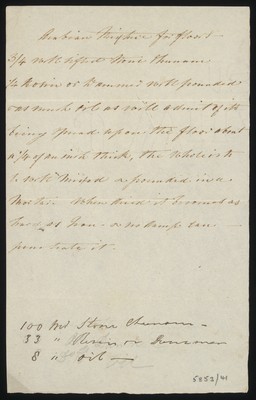 Arabian for floor —
3/4 well sifted Stone Chunam
1/4 Rosin or Dammer well pounded
& as much Oil as will admit of its
being spread upon the floor about
a 1/4 of an inch thick, the whole is to
be well Mixed & pounded in a
Mortar. When dried it becomes as
hard as Iron & no damp can
penetrate it.
100 Stone Chunam —
33 " Resin or Dammer
8 " oil —
5053/41